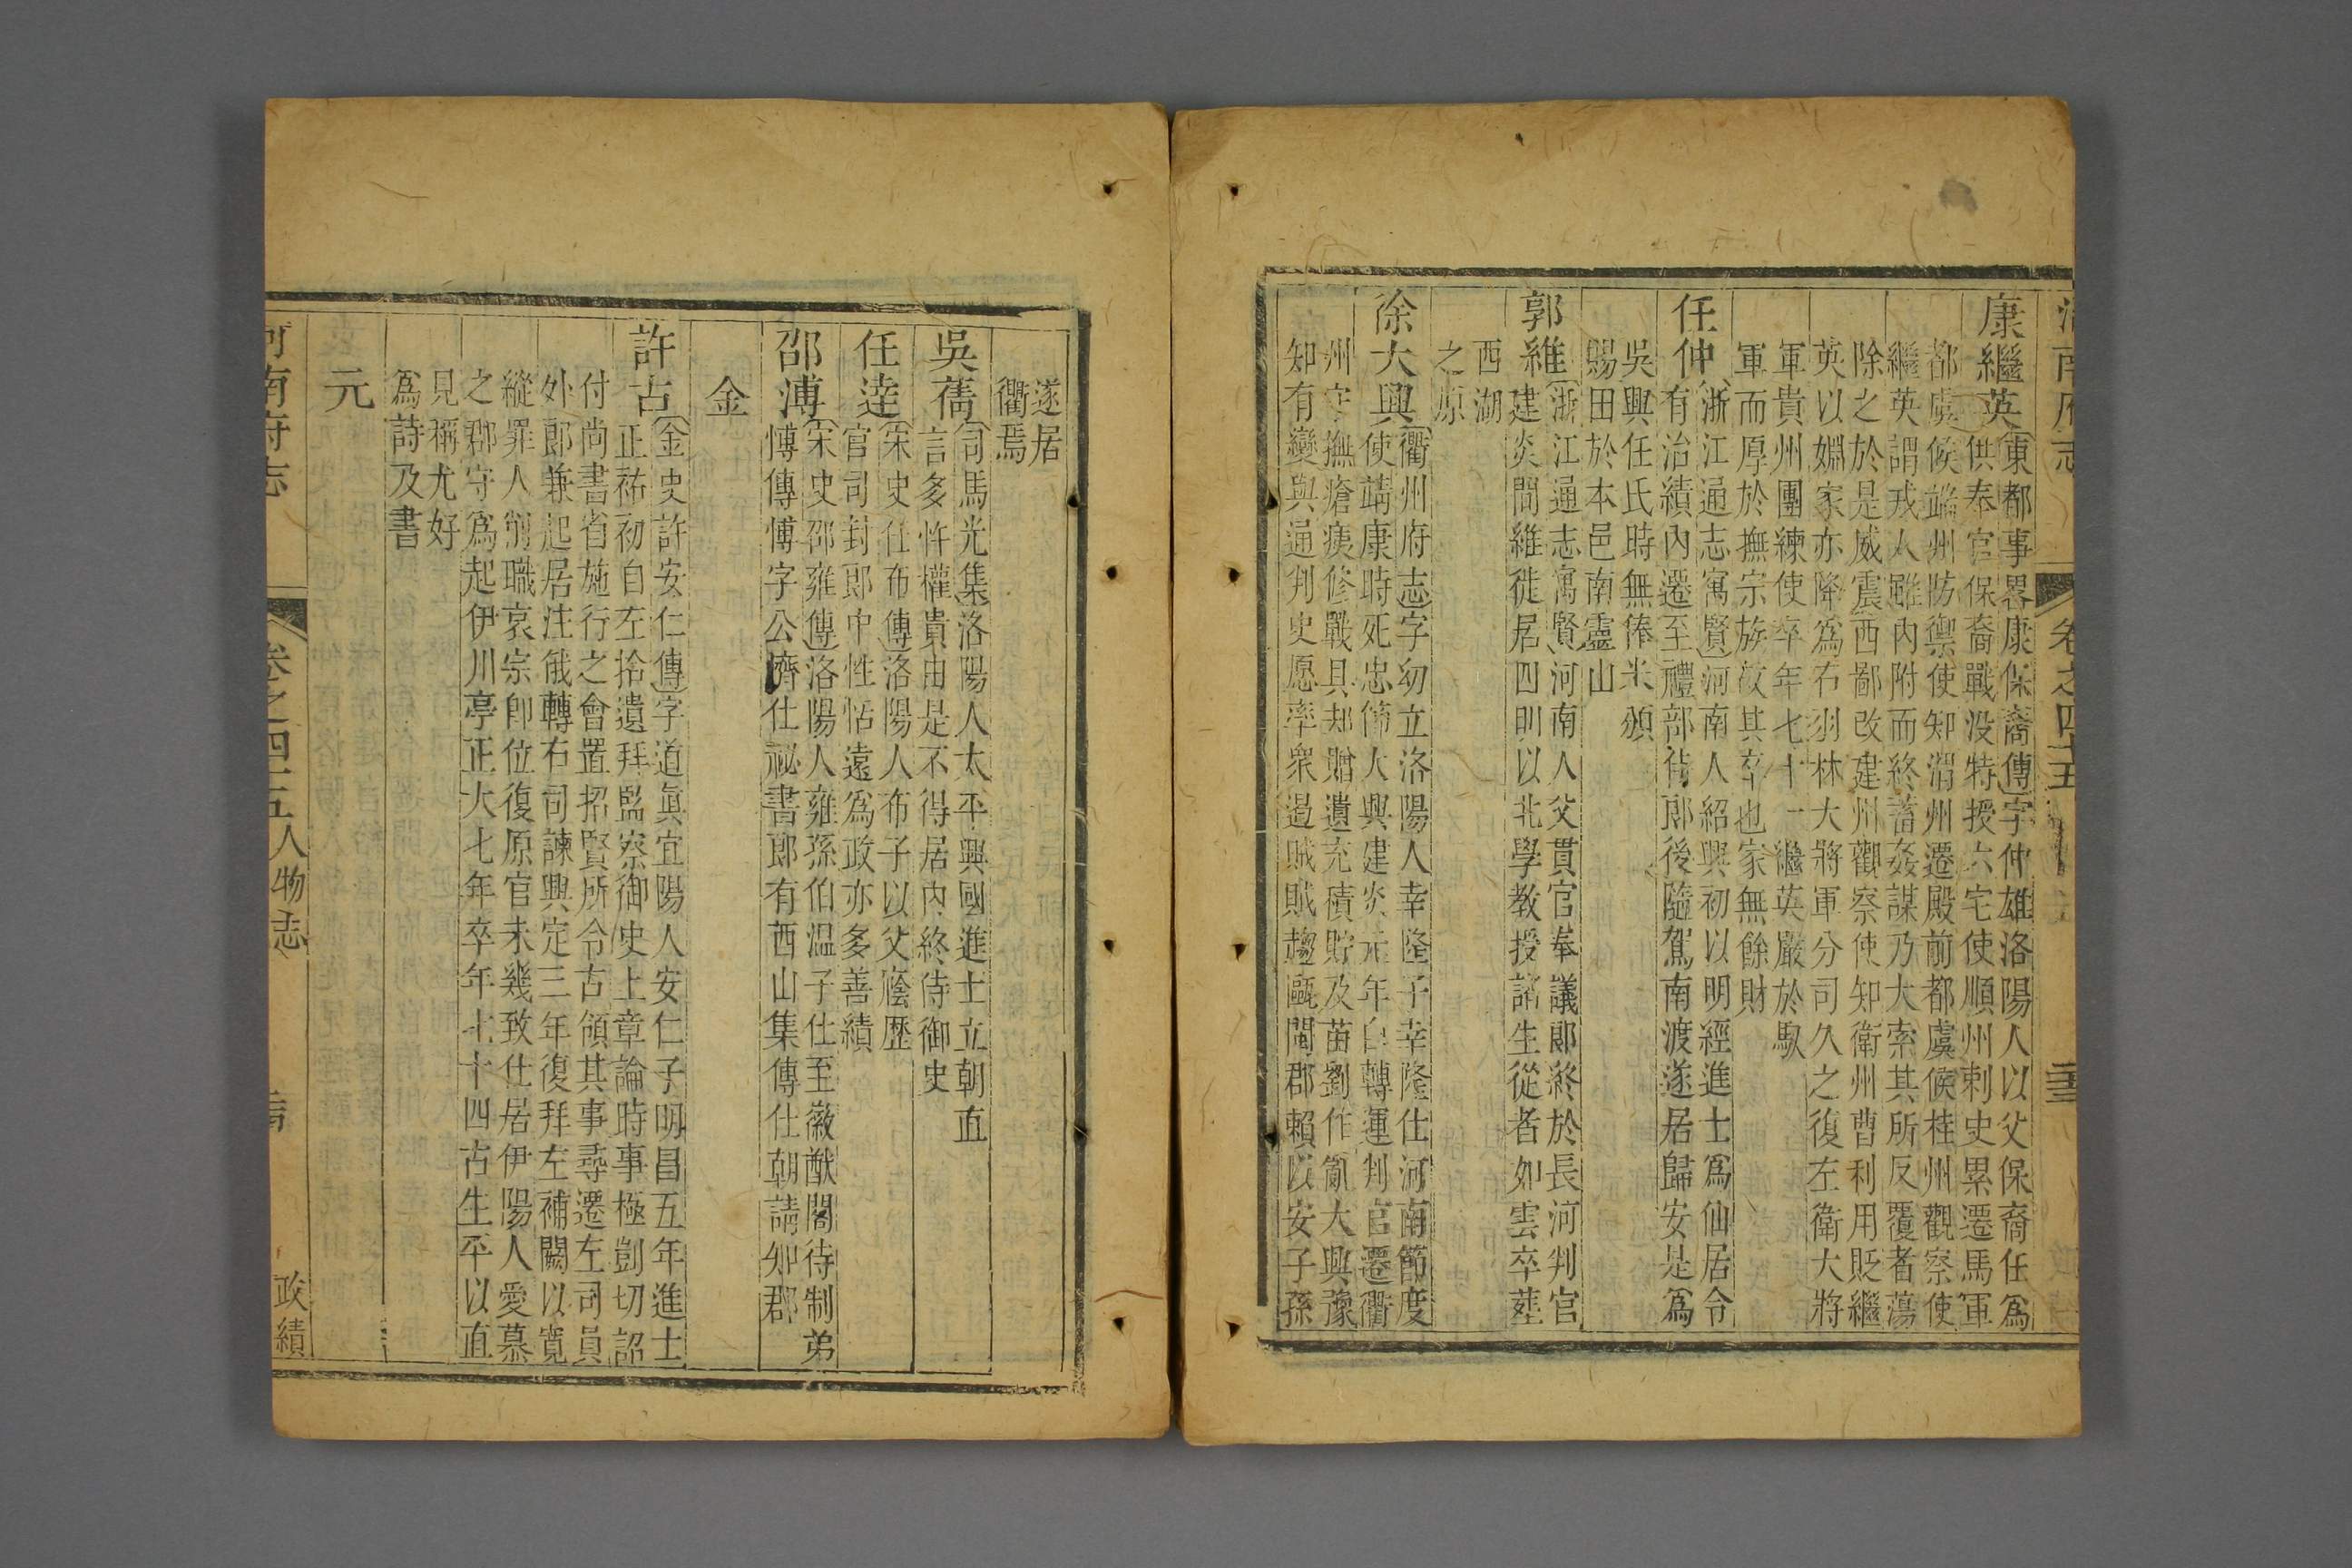 河南府志
卷之四十五
康繼英
東都事畧康保裔傳字仲雄洛陽人以父保裔任爲
供奉官保裔戰没特授六宅使順州刺史累遷馬軍
都虞候端州防禦使知渭州遷殿前都虞候桂州觀察使
繼英謂戎人雖内附而終蓄姦謀乃大索其所反覆者蕩
除之於是威震西鄙改建州觀察使知衛州曹利用貶繼
英以婣家亦降爲右羽林大將軍分司久之復左衛大將
軍貴州團練使卒年七十一繼英嚴於馭
軍而厚於撫宗族故其卒也家無餘財
任仲
浙江通志寓賢河南人紹興初以明經進士爲仙居令
有治績内遷至禮部侍郎後隨駕南渡遂居歸安是爲
吳興任氏時無俸米頒
賜田於本邑南靈山
郭維
浙江通志寓賢河南人父貫官奉議郎終於長河判官
建炎間維徙居四明以北學教授諸生從者如雲卒塟
西湖
之原
徐大興
衢州府志字幼立洛陽人幸隆子幸隆仕河南節度
使靖康時死忠節大興建炎元年自轉運判官遷衢
州守撫瘡痍修戰具却贈遺充積貯及苗劉作亂大興豫
知有變與通判史愿率衆遏賊賊趨甌閩郡賴以安子孫
遂居
衢焉
吳舊
司馬光集洛陽人太平興國進士立朝直
言多忤權貴由是不得居内終待御史
任逵
宋史任布傳洛陽人布子以父廕歷
官司封郎中性恬遠爲政亦多善績
邵溥
宋史邵雍傳洛陽人雍孫伯温子仕至徽猷閣待制弟
博傳博字公濟仕祕書郎有西山集傳仕朝請知郡
金
許古
金史許安仁傳字道眞宜陽人安仁子明昌五年進士
正祐初自左拾遺拜監察御史上章論時事極剴切詔
付尚書省施行之會置招賢所令古領其事尋遷左司員
外郎兼起居注俄轉右司諫興定三年復拜左補闕以寬
縱罪人削職哀宗卽位復原官未幾致仕居伊陽人愛慕
之郡守爲起伊川亭正大七年卒年七十四古生平以直
見稱尤好
爲詩及書
元
河南府志
卷之四十五人物志
政績